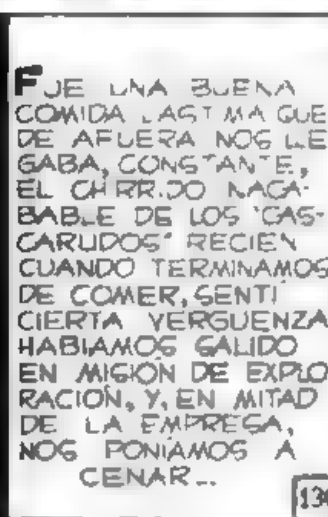 FUE UNA BUENA
COMIDA LASTIMA QUE
DE AFUERA NOS LLE
GABA, CONSTANTE,
EL CHIRRIDO INACA-
BABLE DE LOS "CAS-
CARUDOS" RECIEN
CUANDO TERMINAMOS
DE COMER, SENTI
CIERTA VERGUENZA
HABIAMOS SALIDO
EN MISIÓN DE EXPLO
RACIÓN, Y, EN MITAD
DE LA EMPRESA,
NOS PONÍAMOS A
CENAR...